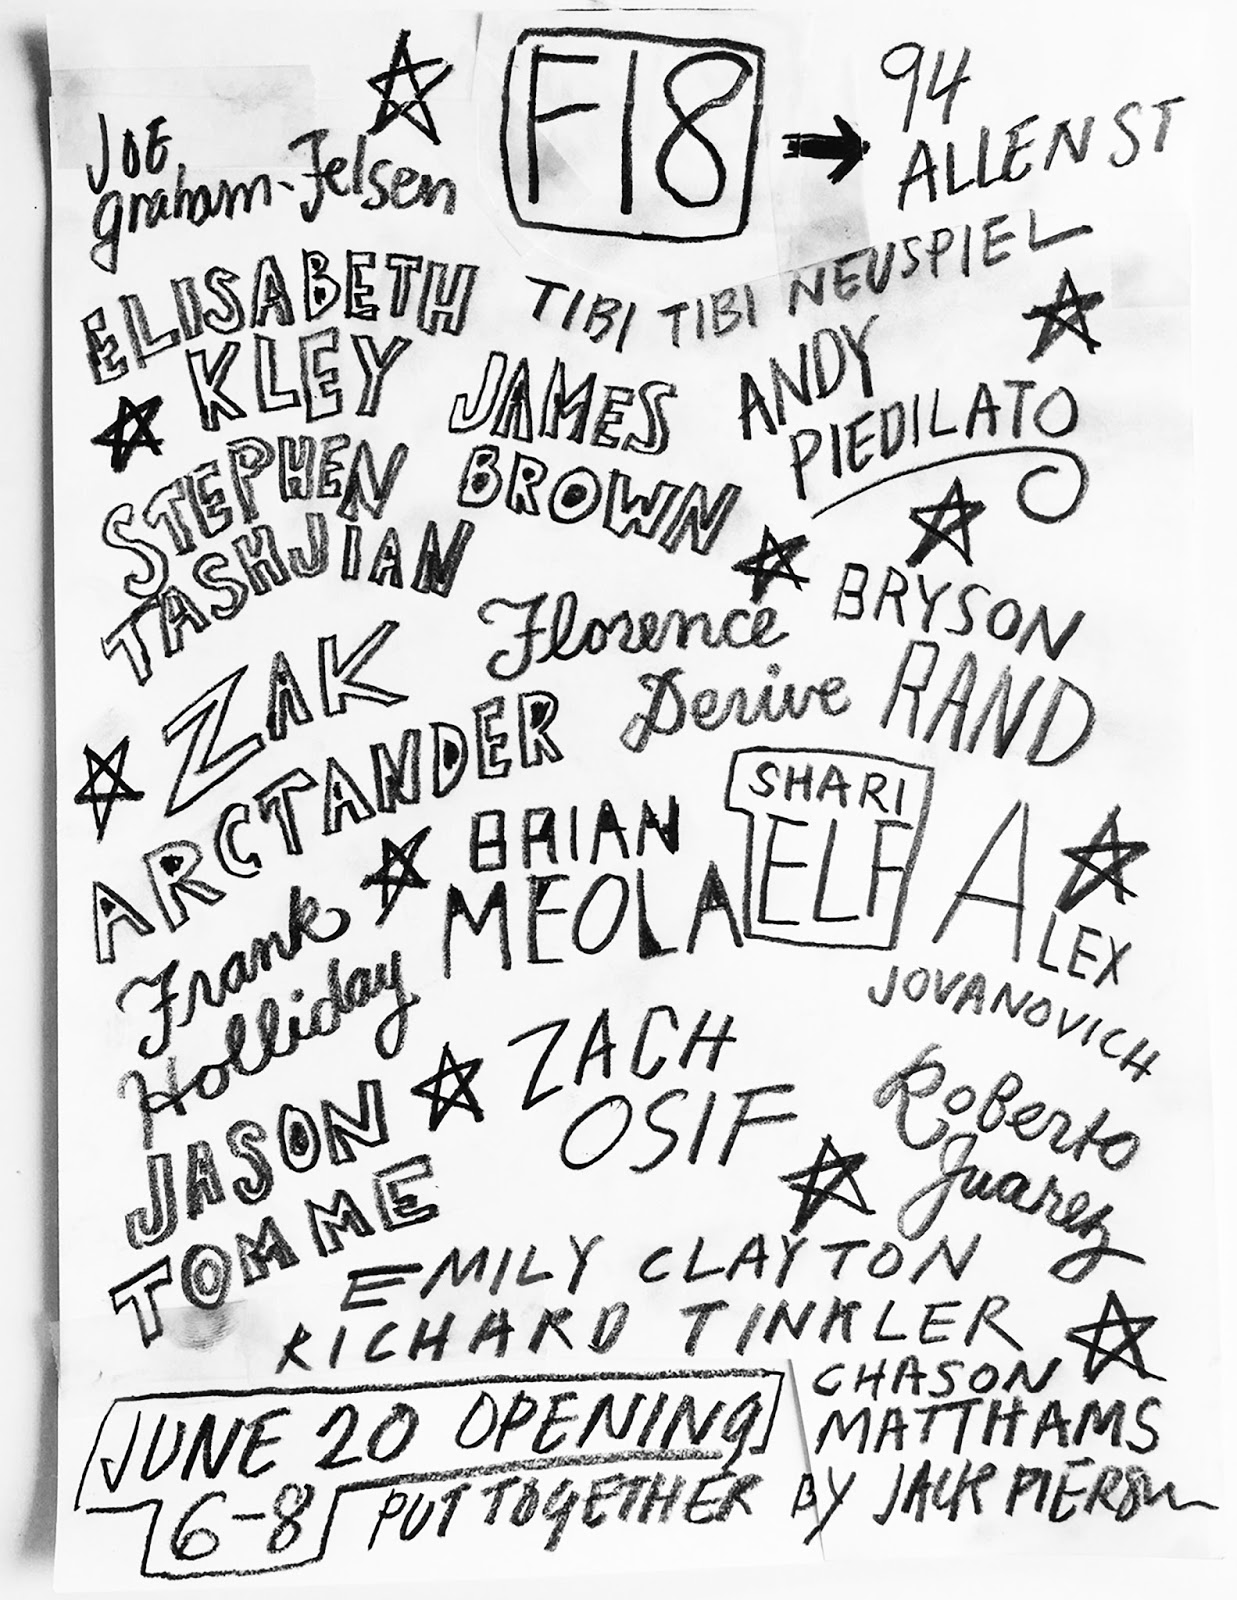 F18
94
ALLEN ST
JOE
Graham-Felsen
ELISABETH
KLEY
TIBI TIBI NEUSPIEL
JAMES
BROWN
ANDY
PIEDILATO
STEPHEN
TASHJIAN
Florence
Derive
BRYSON
RAND
ZAK
ARCTANDER
BRIAN
MEOLA
SHARI
ELF
ALEX
JOVANOVICH
Frank
Holliday
JASON
TOMME
ZACH
OSIF
Roberto
Juarez
EMILY CLAYTON
RICHARD TINKLER
CHASON
MATTHAMS
JUNE 20 OPENING
6-8
PUT TOGETHER BY JACK PIERSON